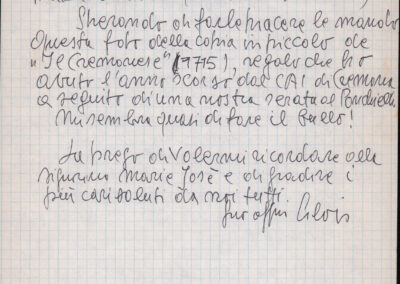 Sperando di farle piacere le mando
questa foto della copia in piccolo de
"Il Cremonese" (1715), regalo che ho
avuto l'anno scorso dal CAI di Cremona
a seguito di una nostra serata al Ponchielli.
Mi sembra quasi di fare il bullo!
La prego di volermi ricordare alla
signorina Marie Josè e di gradire i
più cari saluti da noi tutti.
Suo aff.mo